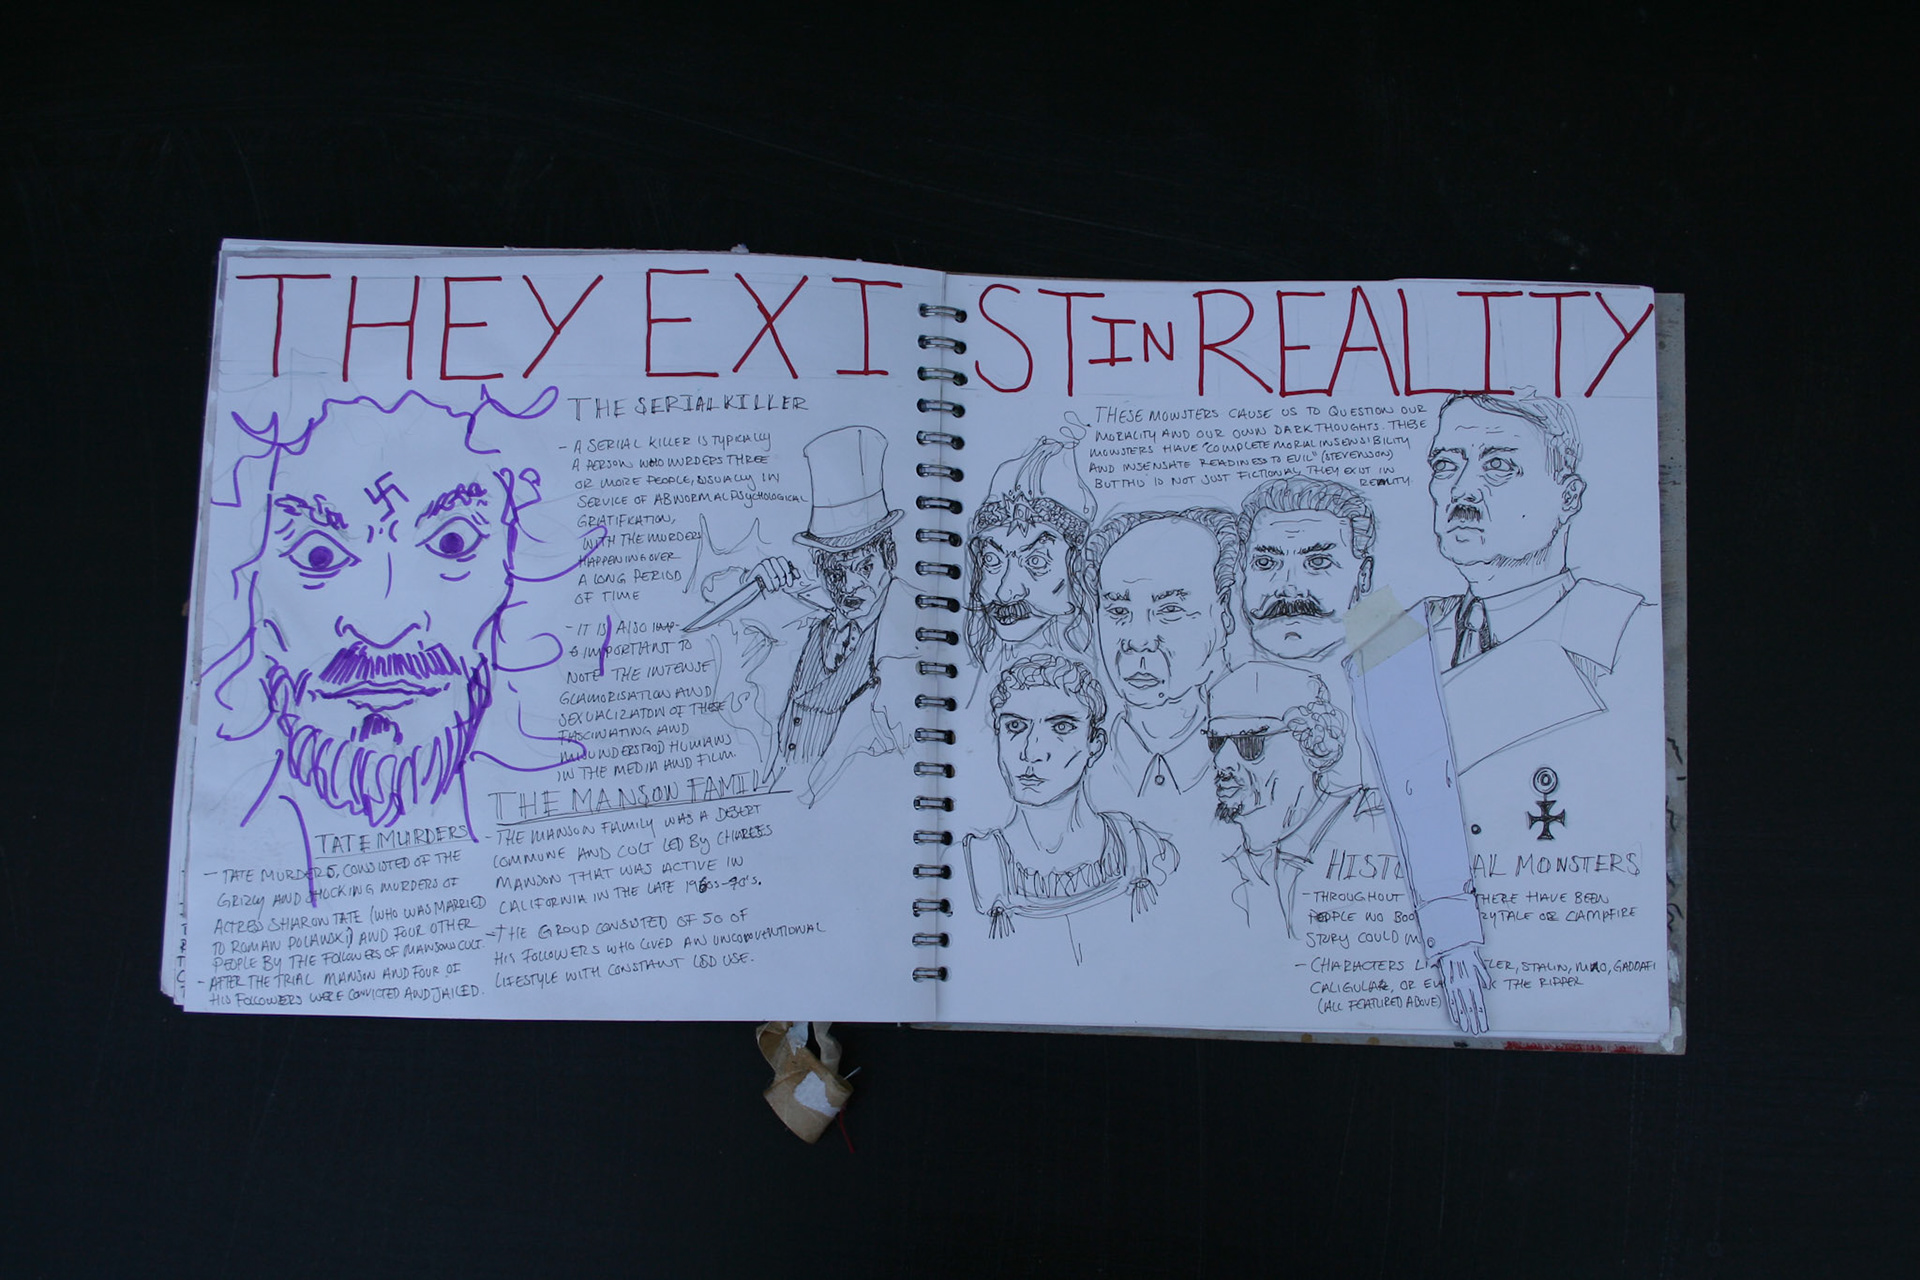 THEY EXIST IN REALITY
THE SERIAL KILLER
- A SERIAL KILLER IS TYPICALLY
A PERSON WHO MURDERS THREE
OR MORE PEOPLE, USUALLY IN
SERVICE OF ABNORMAL PSYCHOLOGICAL
GRATIFICATION,
WITH THE MURDERS
HAPPENING OVER
A LONG PERIOD
OF TIME
- IT IS ALSO
IMPORTANT TO
NOTE THE INTENSE
GLAMORISATION AND
SEXUALIZATON OF THESE
FASCINATING AND
MISUNDERSTOOD HUMANS
IN THE MEDIA AND FILM.
THE MANSON FAMILY
- THE MANSON FAMILY WAS A DESERT
COMMUNE AND CULT LED BY CHARLES
MANSON THAT WAS ACTIVE IN
CALIFORNIA IN THE LATE 1960s-70's.
- THE GROUP CONSISTED OF 50 OF
HIS FOLLOWERS WHO LIVED AN UNCONVENTIONAL
LIFESTYLE WITH CONSTANT LSD USE.
TATE MURDERS
- TATE MURDERS, CONSISTED OF THE
GRIZLY AND SHOCKING MURDERS OF
ACTRESS SHARON TATE (WHO WAS MARRIED
TO ROMAN POLANSKI) AND FOUR OTHER
PEOPLE BY THE FOLLOWERS OF MANSONS CULT.
- AFTER THE TRIAL MANSON AND FOUR OF
HIS FOLLOWERS WERE CONVICTED AND JAILED.
THESE MONSTERS CAUSE US TO QUESTION OUR
MORALITY AND OUR OWN DARK THOUGHTS. THESE
MONSTERS HAVE "COMPLETE MORAL INSENSIBILITY
AND INSENSATE READINESS TO EVIL" (STEVENSON)
BUT THIS IS NOT JUST FICTIONAL THEY EXIST IN
REALITY.
HIST AL MONSTERS
- THROUGHOUT THERE HAVE BEEN
PEOPLE NO BOO RYTALE OR CAMPFIRE
STORY COULD
- CHARACTERS LI TLER, STALIN, MAO, GADDAFI
CALIGULA, OR EV K THE RIPPER
(ALL FEATURED ABOVE)